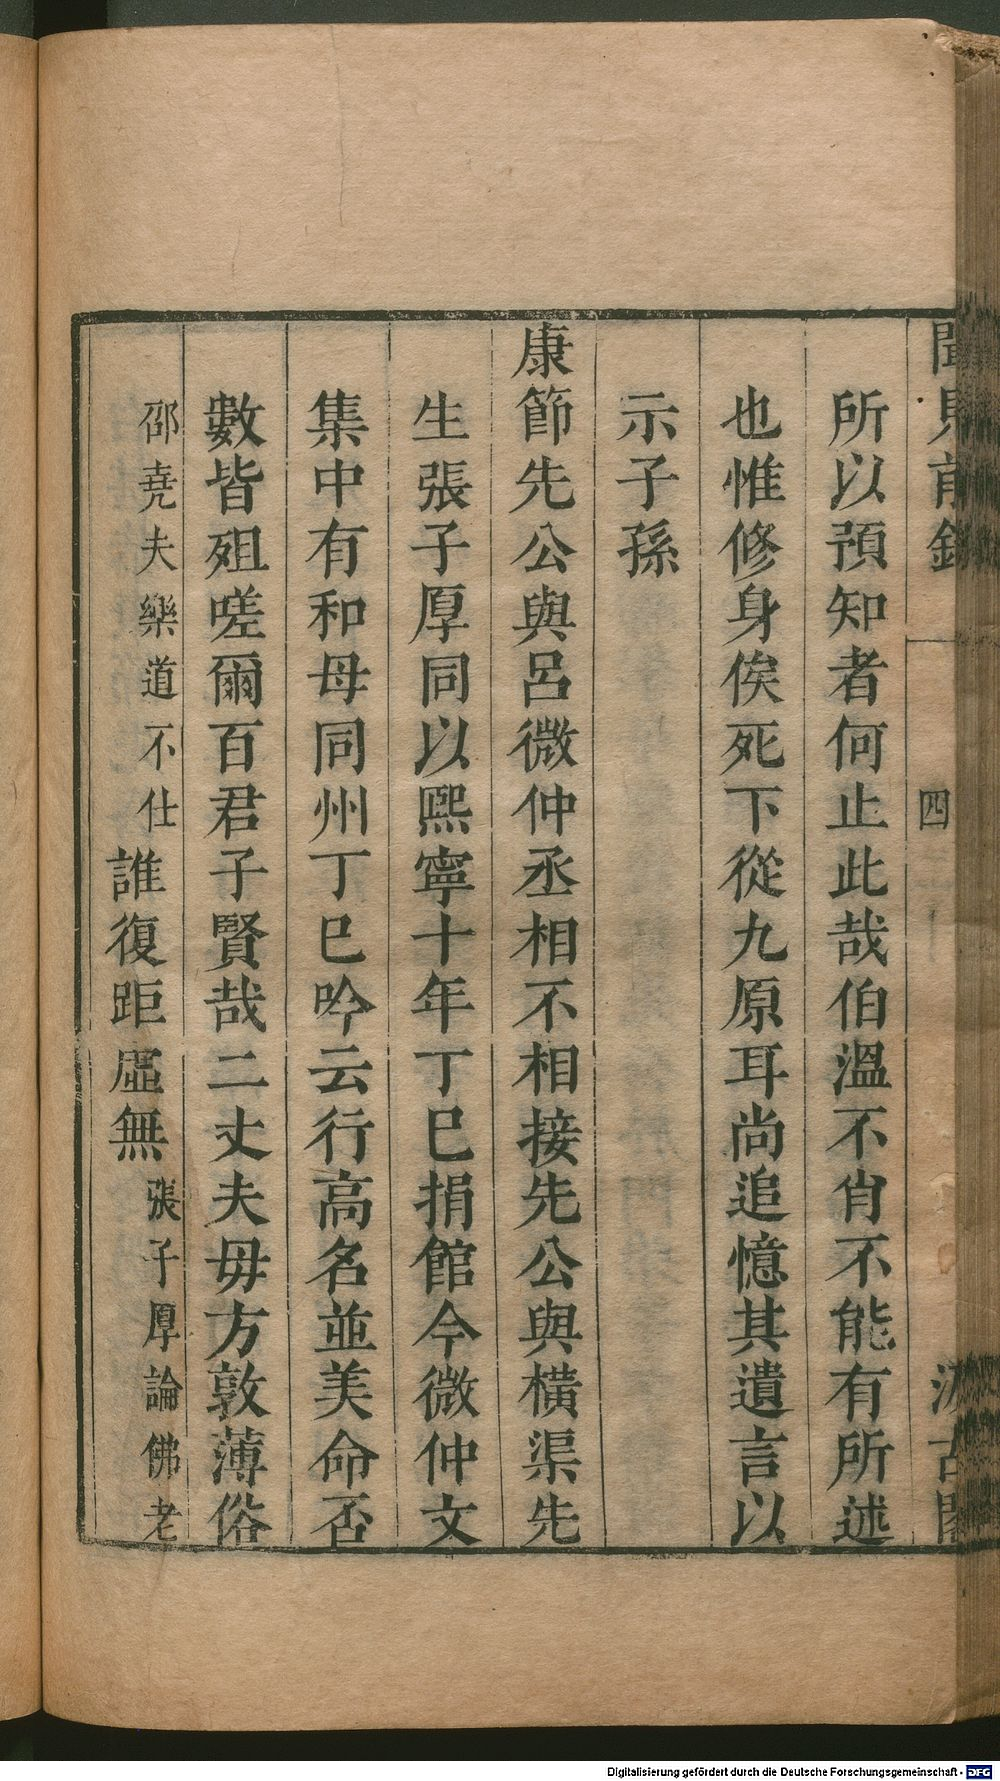 聞見前錄
四
汲古閣
所以預知者何止此哉伯溫不肖不能有所述
也惟修身俟死下從九原耳尚追憶其遺言以
示子孫
康節先公與呂微仲丞相不相接先公與橫渠先
生張子厚同以熙寧十年丁巳捐館今微仲文
集中有和母同州丁巳吟云行高名並美命否
數皆殂嗟爾百君子賢哉二丈夫毋方敦薄俗
邵堯夫樂道不仕誰復距虛無張子厚論佛老
Digitalisierung gefördert durch die Deutsche Forschungsgemeinschaft - DFG